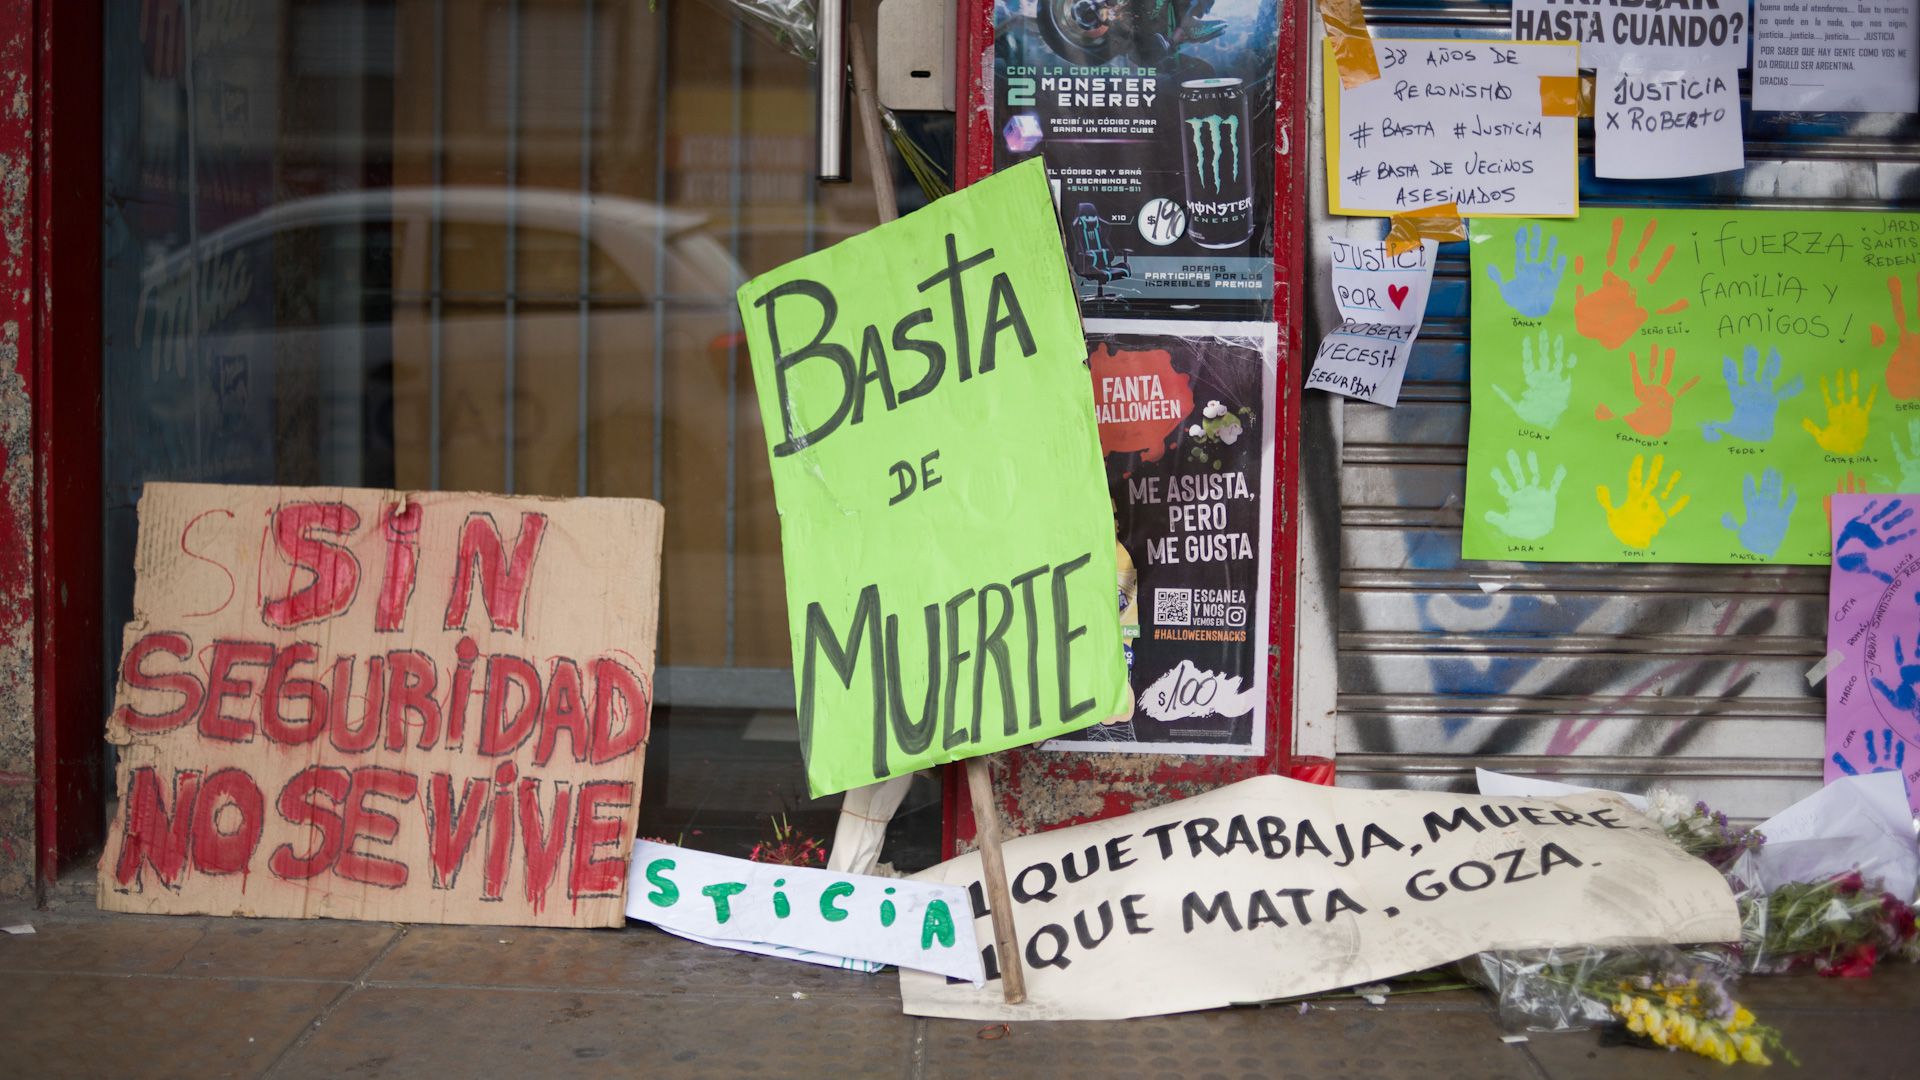 SiN
SEGURiDAD
NO SE ViVE
BASTA
DE
MUERTE
STiCiA
QUE TRABAJA, MUERE.
QUE MATA, GOZA.
CON LA COMPRA DE
2 MONSTER
ENERGY
RECIBÍ UN CÓDIGO PARA
GANAR UN MAGIC CUBE
CÓDIGO QR Y GANÁ
O ESCRIBINOS AL
+549 11 6025-511
X10
$190
MONSTER
ENERGY
ADEMÁS
PARTICIPÁS POR LOS
INCREÍBLES PREMIOS
FANTA
HALLOWEEN
ME ASUSTA,
PERO
ME GUSTA
ESCANEA
Y NOS
VEMOS EN
#HALLOWEENSNACKS
$100
HASTA CUÁNDO?
38 AÑOS DE
PERONISMO
# BASTA # JUSTICIA
# BASTA DE VECINOS
ASESINADOS
JUSTICIA
X ROBERTO
buena onda al atendernos... Que tu muerte
no quede en la nada, que nos oigan,
justicia...justicia..... justicia...... JUSTICIA
POR SABER QUE HAY GENTE COMO VOS ME
DA ORGULLO SER ARGENTINA.
GRACIAS
JUSTICI
POR ♥
ROBERT
NECESIT
SEGURIDA
¡FUERZA
FAMILIA Y
AMIGOS!
JARD
SANTIS
REDEN
JANA
SEÑO ELI
LUCA
FRANCHU
FEDE
CATARINA
SEÑO
LARA
TOMI
MAITE
LUCIA
CATA
ROMÁN
MARCO
CATA
JARDÍN SANTÍSIMO RED